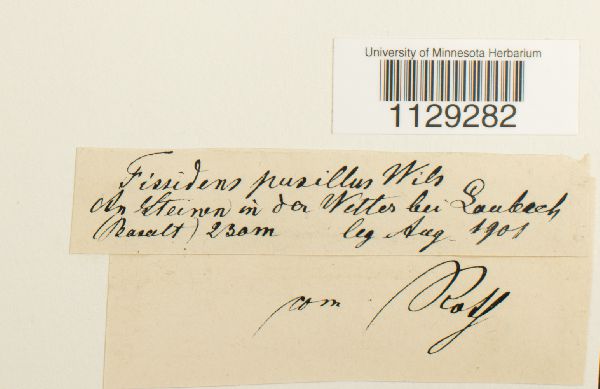 University of Minnesota Herbarium
1129282
Fissidens pusillus Wils
An Steinen in der Wetter bei Laubach
(Basalt) 230m leg Aug 1901
com. Roth